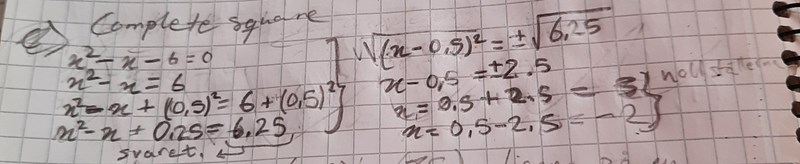 e) Complete square
x² - x - 6 = 0
x² - x = 6
x² - x + (0,5)² = 6 + (0,5)²
x² - x + 0.25 = 6,25
svaret.
√(x - 0,5)² = ±√6,25
x - 0,5 = ±2.5
x = 0.5 + 2.5 = 3
x = 0,5 - 2,5 = -2